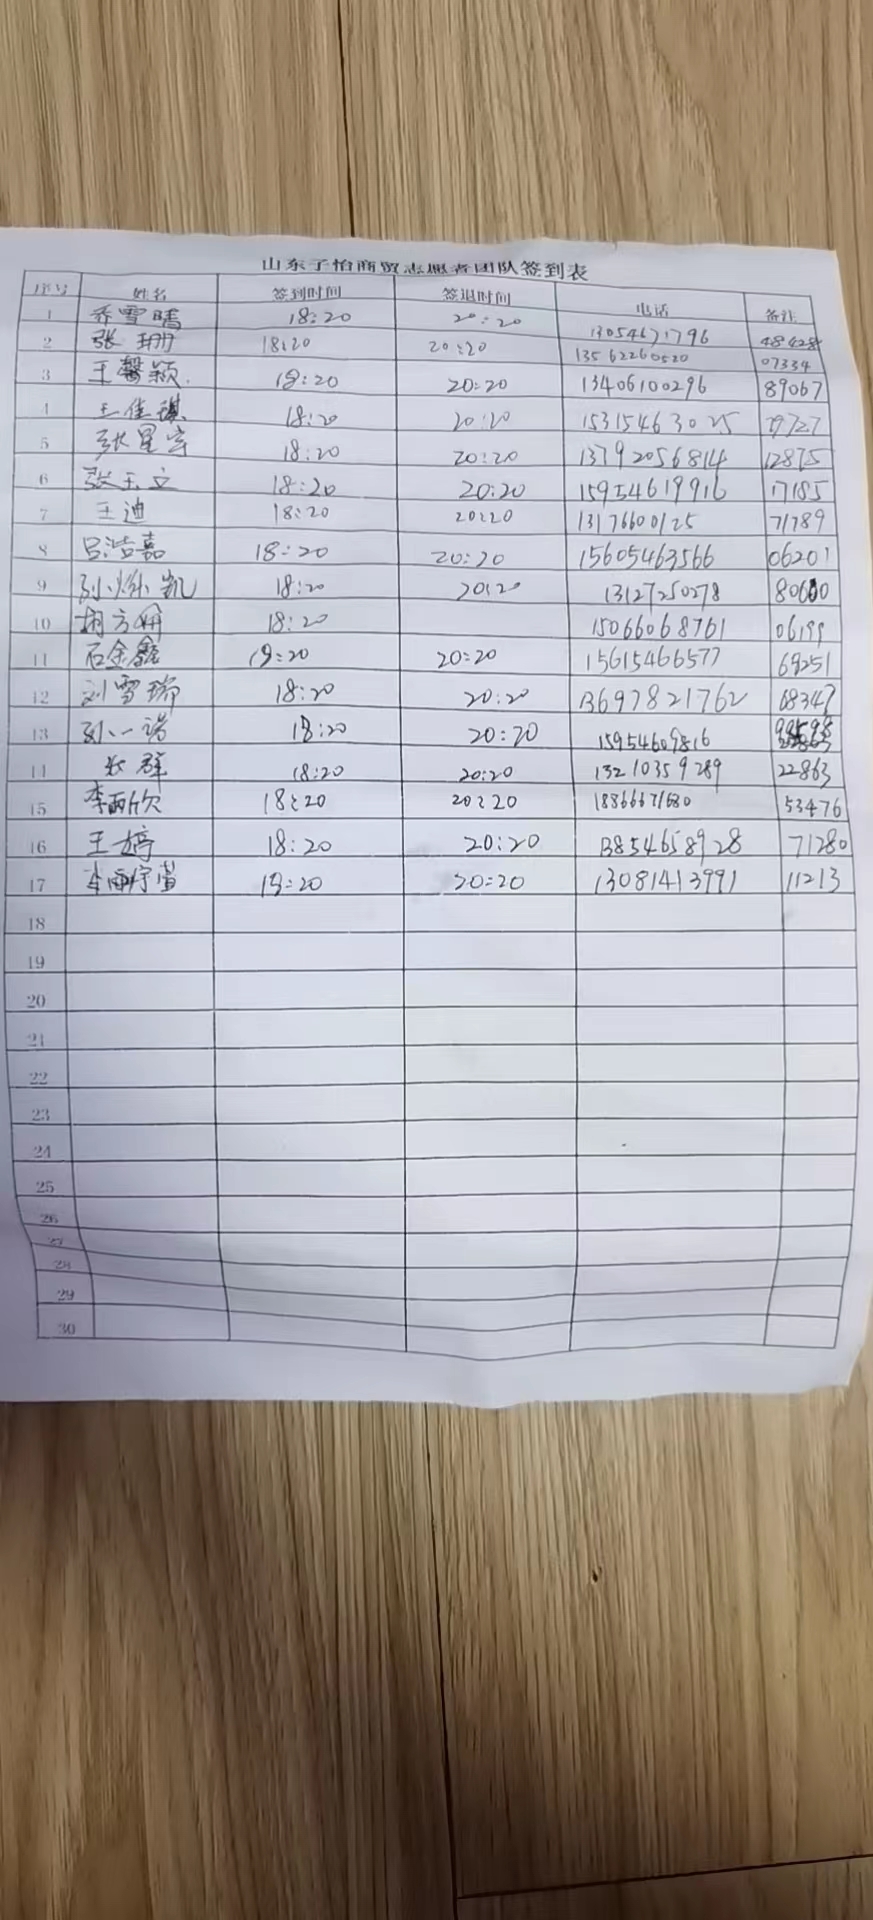 山东子怡商贸志愿者团队签到表
序号 姓名 签到时间 签退时间 电话 备注
1 乔雪晴 18:20 20:20 13054671796 48428
2 张珊 18:20 20:20 13562260520 07334
3 王馨颖 18:20 20:20 13406100296 89067
4 王佳琪 18:20 20:20 15315463025 29727
5 张星宇 18:20 20:20 13792056814 12875
6 张玉立 18:20 20:20 15954619916 17185
7 王迪 18:20 20:20 13176600125 71789
8 吕浩嘉 18:20 20:20 15605463566 06201
9 孙 凯 18:20 20:20 13127250278
10 胡方 18:20 15066068761 06199
11 石金鑫 18:20 20:20 15615466577 69251
12 刘雪瑞 18:20 20:20 13697821762 68347
13 孙一诺 18:20 20:20 15954609816
14 张群 18:20 20:20 13210359289 22863
15 李雨欣 18:20 20:20 18866671680 53476
16 王婷 18:20 20:20 13854658928 71280
17 18:20 20:20 13081413991 11213
18
19
20
21
22
23
24
25
26
27
28
29
30